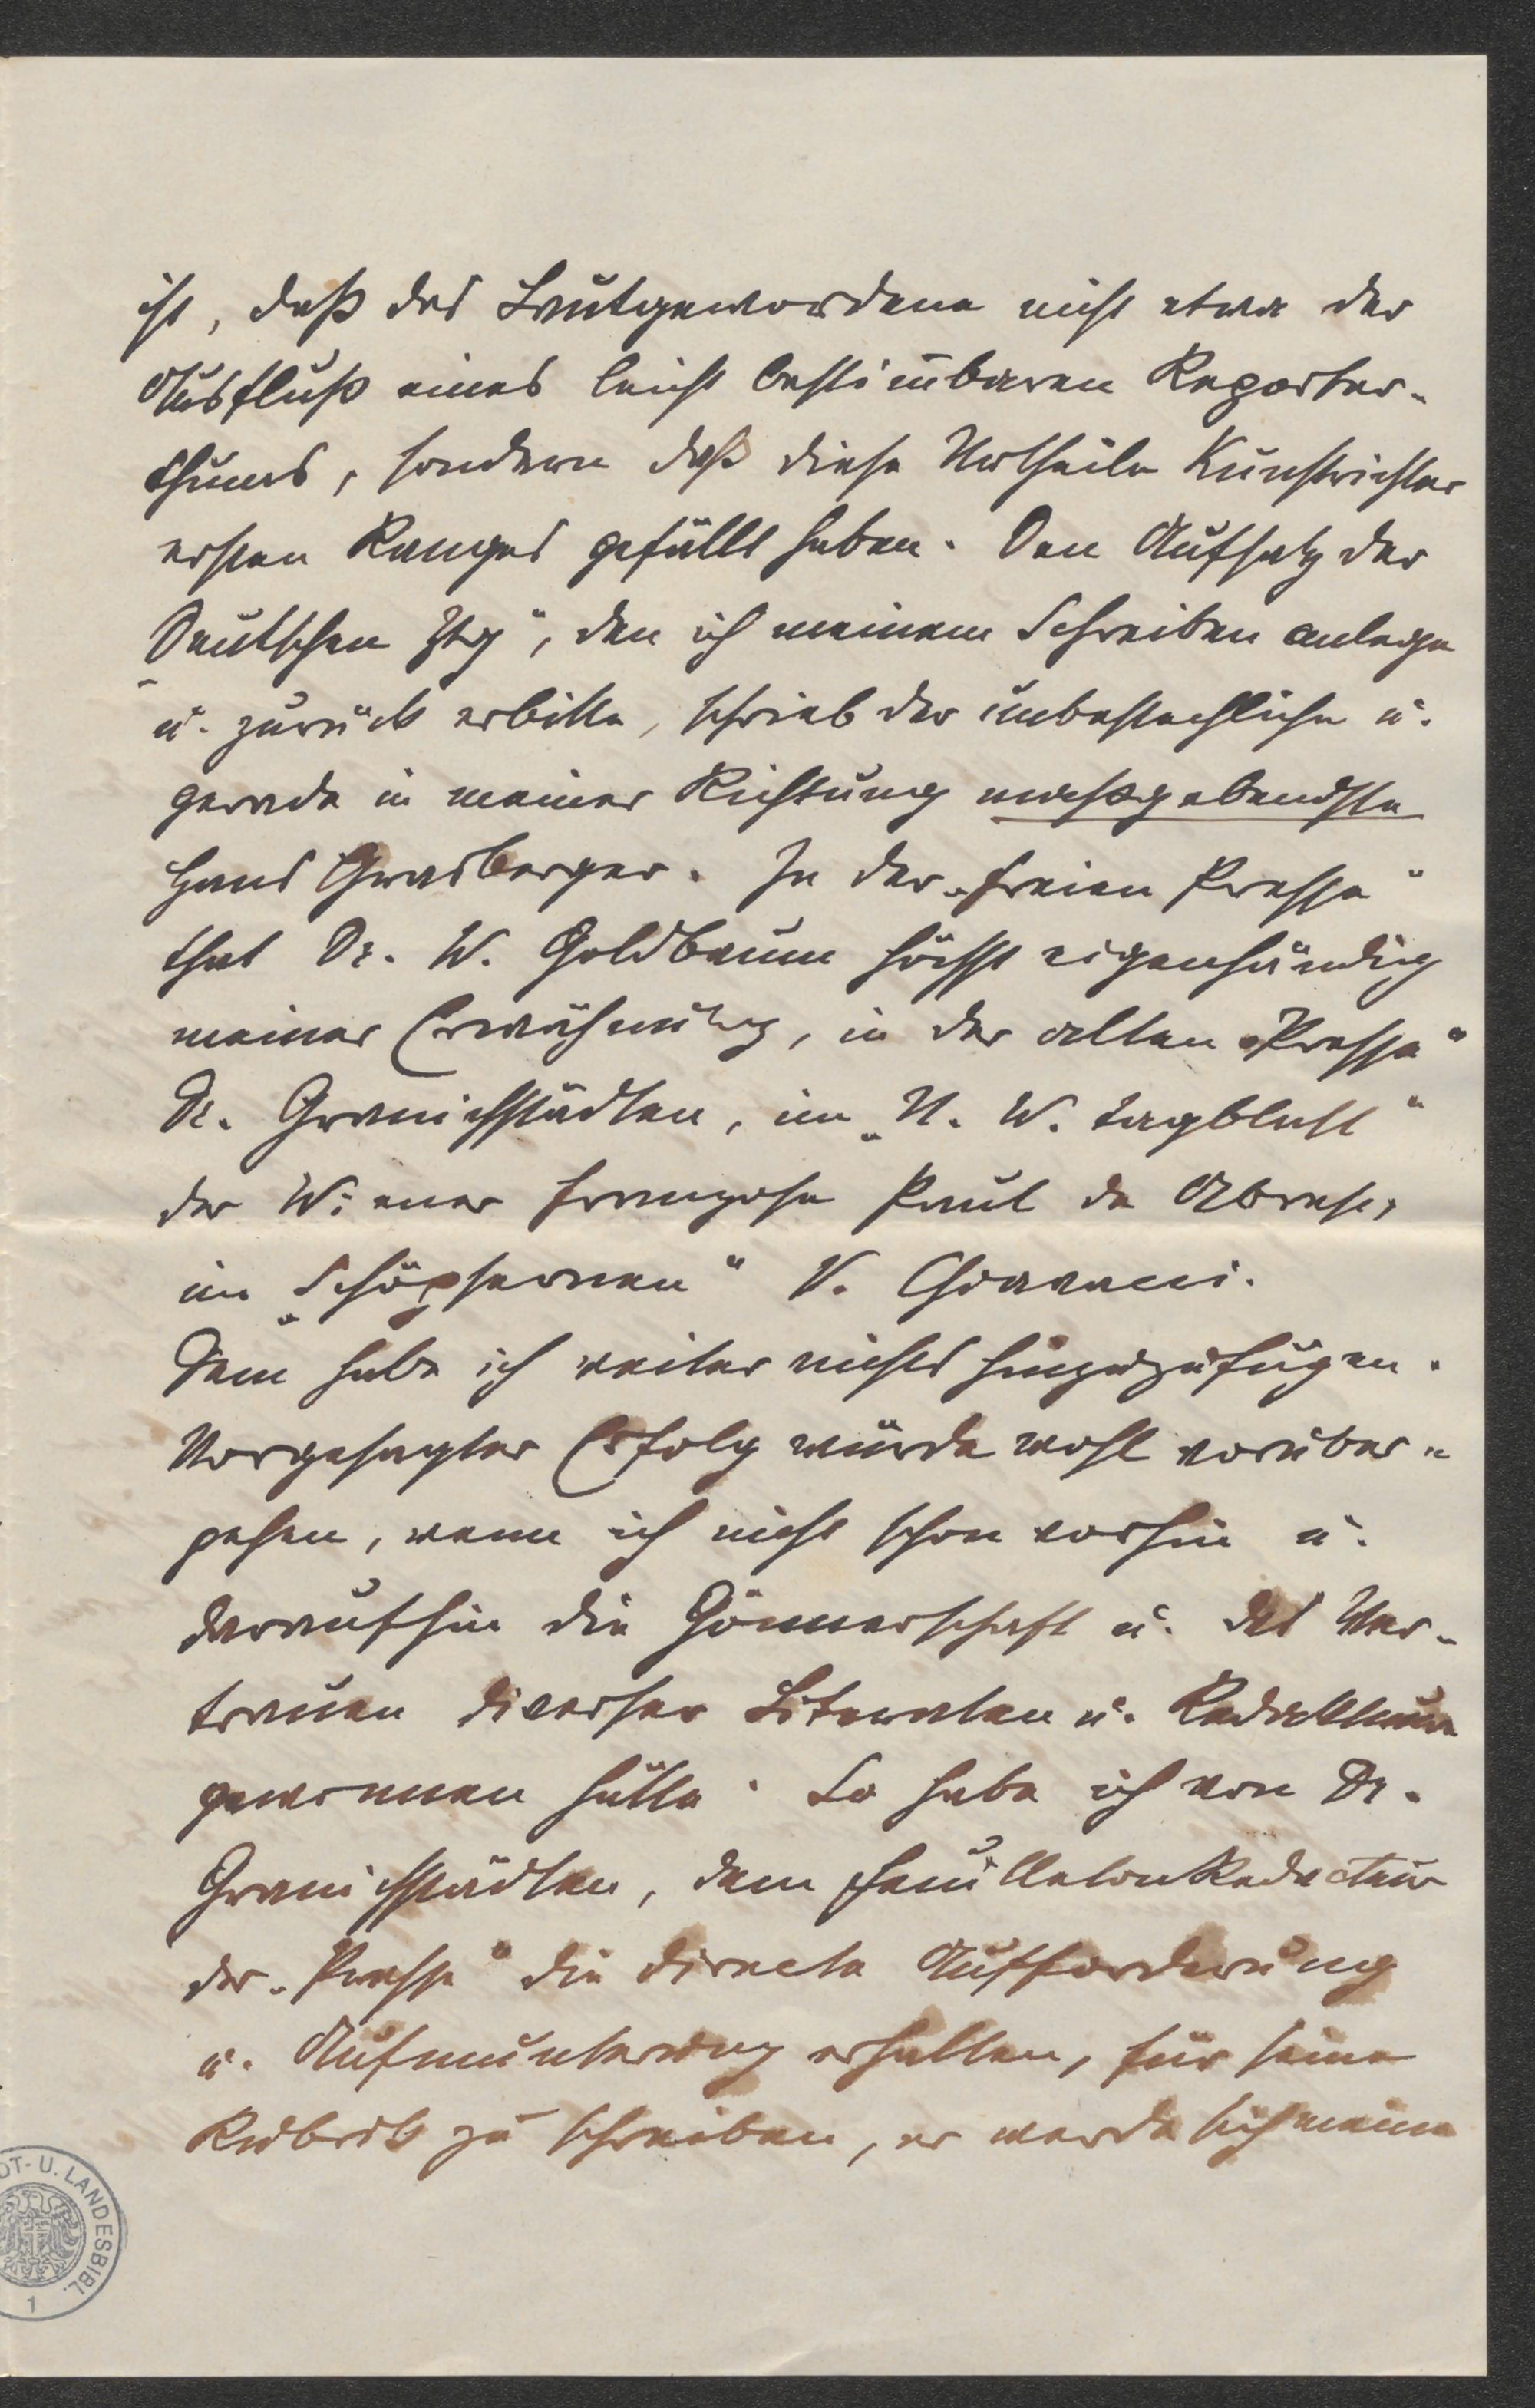 ist, daß das Lautgewordene nicht etwa der
Ausfluß eines leicht bestim̅baren Reporter-
thums, sondern daß diese Urtheile Kunstrichter
ersten Ranges gefällt haben. Den Aufsatz der
„Deutschen Ztg“, den ich meinem Schreiben anlege
u. zurück erbitte, schrieb der unbestechliche u.
gerade in meiner Richtung maßgebendste
Hans Grasberger. In der „freien Presse“
that Dr. W. Goldbaum höchst eigenhändig
meiner Erwähnung, in der alten „Presse“
Dr. Granichstädten, im „N. W. Tagblatt“
der Wiener Franzose Paul de Abrest,
im „Schöpfernen“ V. Chiavacci.
Dem habe ich weiter nichts hinzuzufügen.
Vorgesagter Erfolg würde wohl vorüber-
gehen, wenn ich nicht schon vorhin u.
daraufhin die Gönnerschaft u. das Ver-
trauen diverser Literaten u. Redakteure
gewonnen hätte. So habe ich von Dr.
Granichstädten, dem Feuilletonredacteur
der „Presse“ die directe Aufforderung
u. Aufmunterung erhalten, für seine
Rubrik zu schreiben, er werde sich meine
DT- U. LANDESBIBL.
1